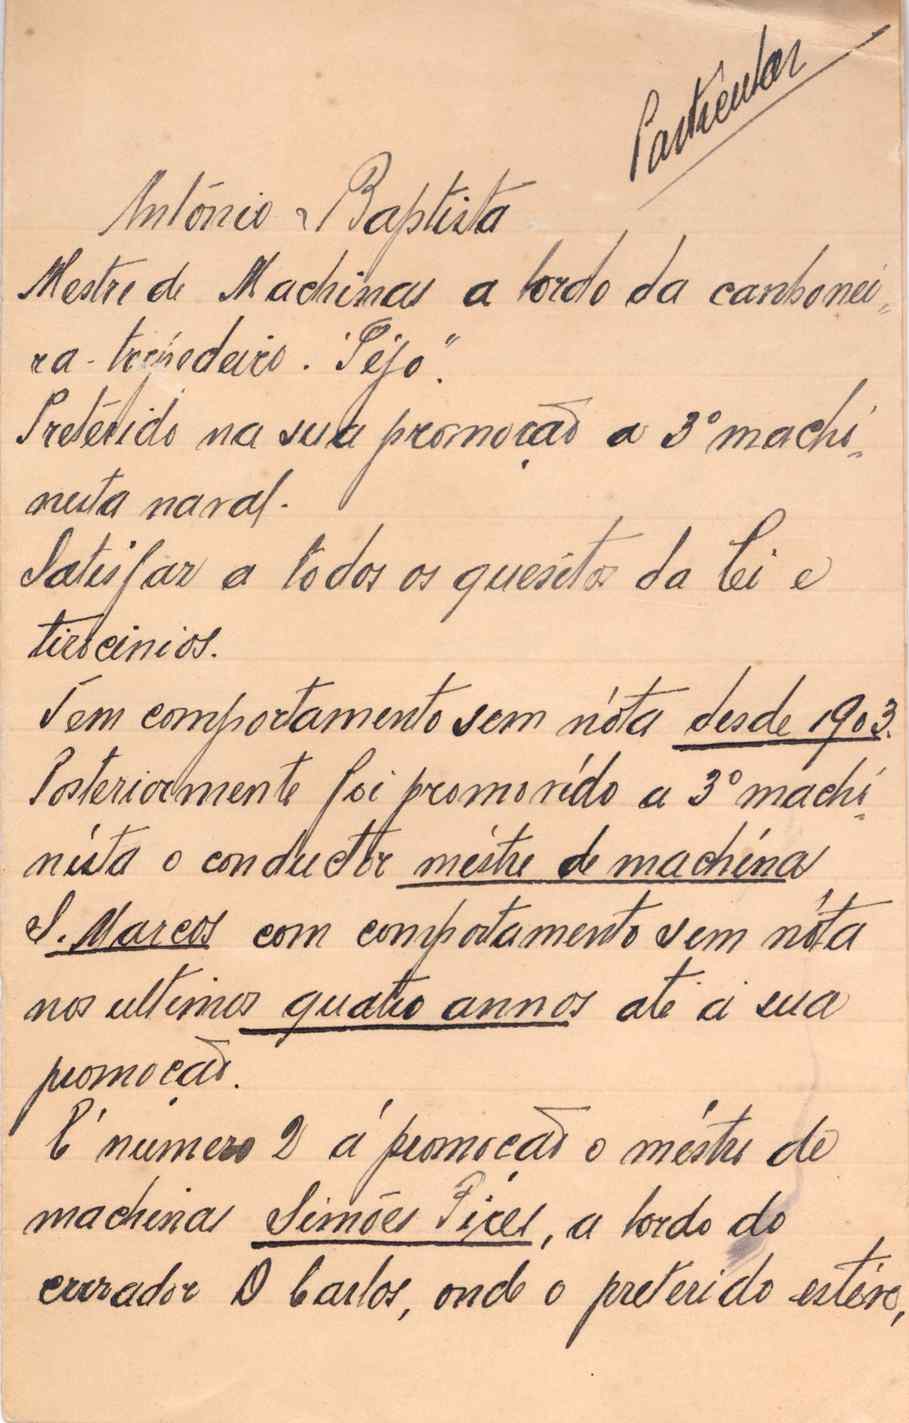 Particular
António Baptista
Mestre de Machinas a bordo da canhonei-
ra-torpedeiro. "Tejo".
Pretérido na sua promoção a 3º machi-
nista naval.
Satisfaz a todos os quesitos da Lei e
tirocinios.
Tem comportamento sem nóta desde 1903.
Posteriormente foi promovido a 3º machi-
nista o conductor méstre de machinas
S. Marcos com comportamento sem nóta
nos ultimos quatro annos até á sua
promoção.
É número 2 á promoção o méstre de
machinas Simões Pires, a bordo do
cruzador D Carlos, onde o preterido estéve,